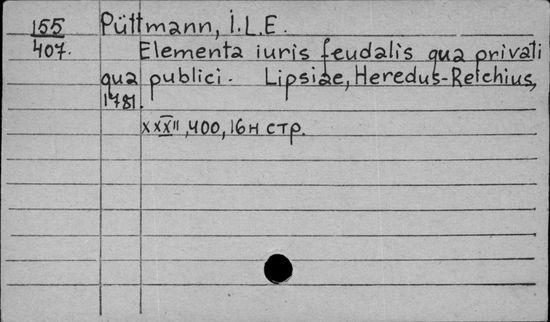 155 Püttmann, I.L.E.
407. Elementa iuris feudalis qua privati
qua publici. Lipsiae, Heredus-Reichius,
1781.
XXXII, 400, 16н стр.